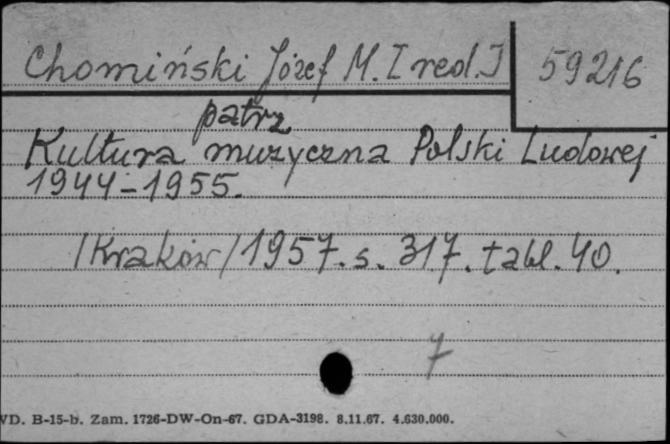 Chomiński Józef M. [red.]
59216
patrz
Kultura muzyczna Polski Ludowej
1944-1955.
/Kraków/ 1957. s. 317. tabl. 40.
7
WD. B-15-b. Zam. 1726-DW-On-67. GDA-3198. 8.11.67. 4.630.000.